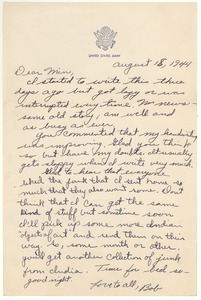 UNITED STATES ARMY
August 18, 1944
Dear Mim,
I started to write this three
days ago but got lazy or was
interrupted every time. No news -
same old story, am well and
as busy as ever.
You commented that my handwriting
was improving. Glad you think
so but I have my doubts. It usually
gets sloppy when I write very much.
Glad to hear that everyone
liked the junk that I sent home so
much that they also want some. Don't
think that I can get the same
kind of stuff but sometime soon
I'll pick up some more Indian
and send them on this
way to, some month or other.
you'll get another collection of junk
from India. Time for bed so -
good night.
Love to all, Bob